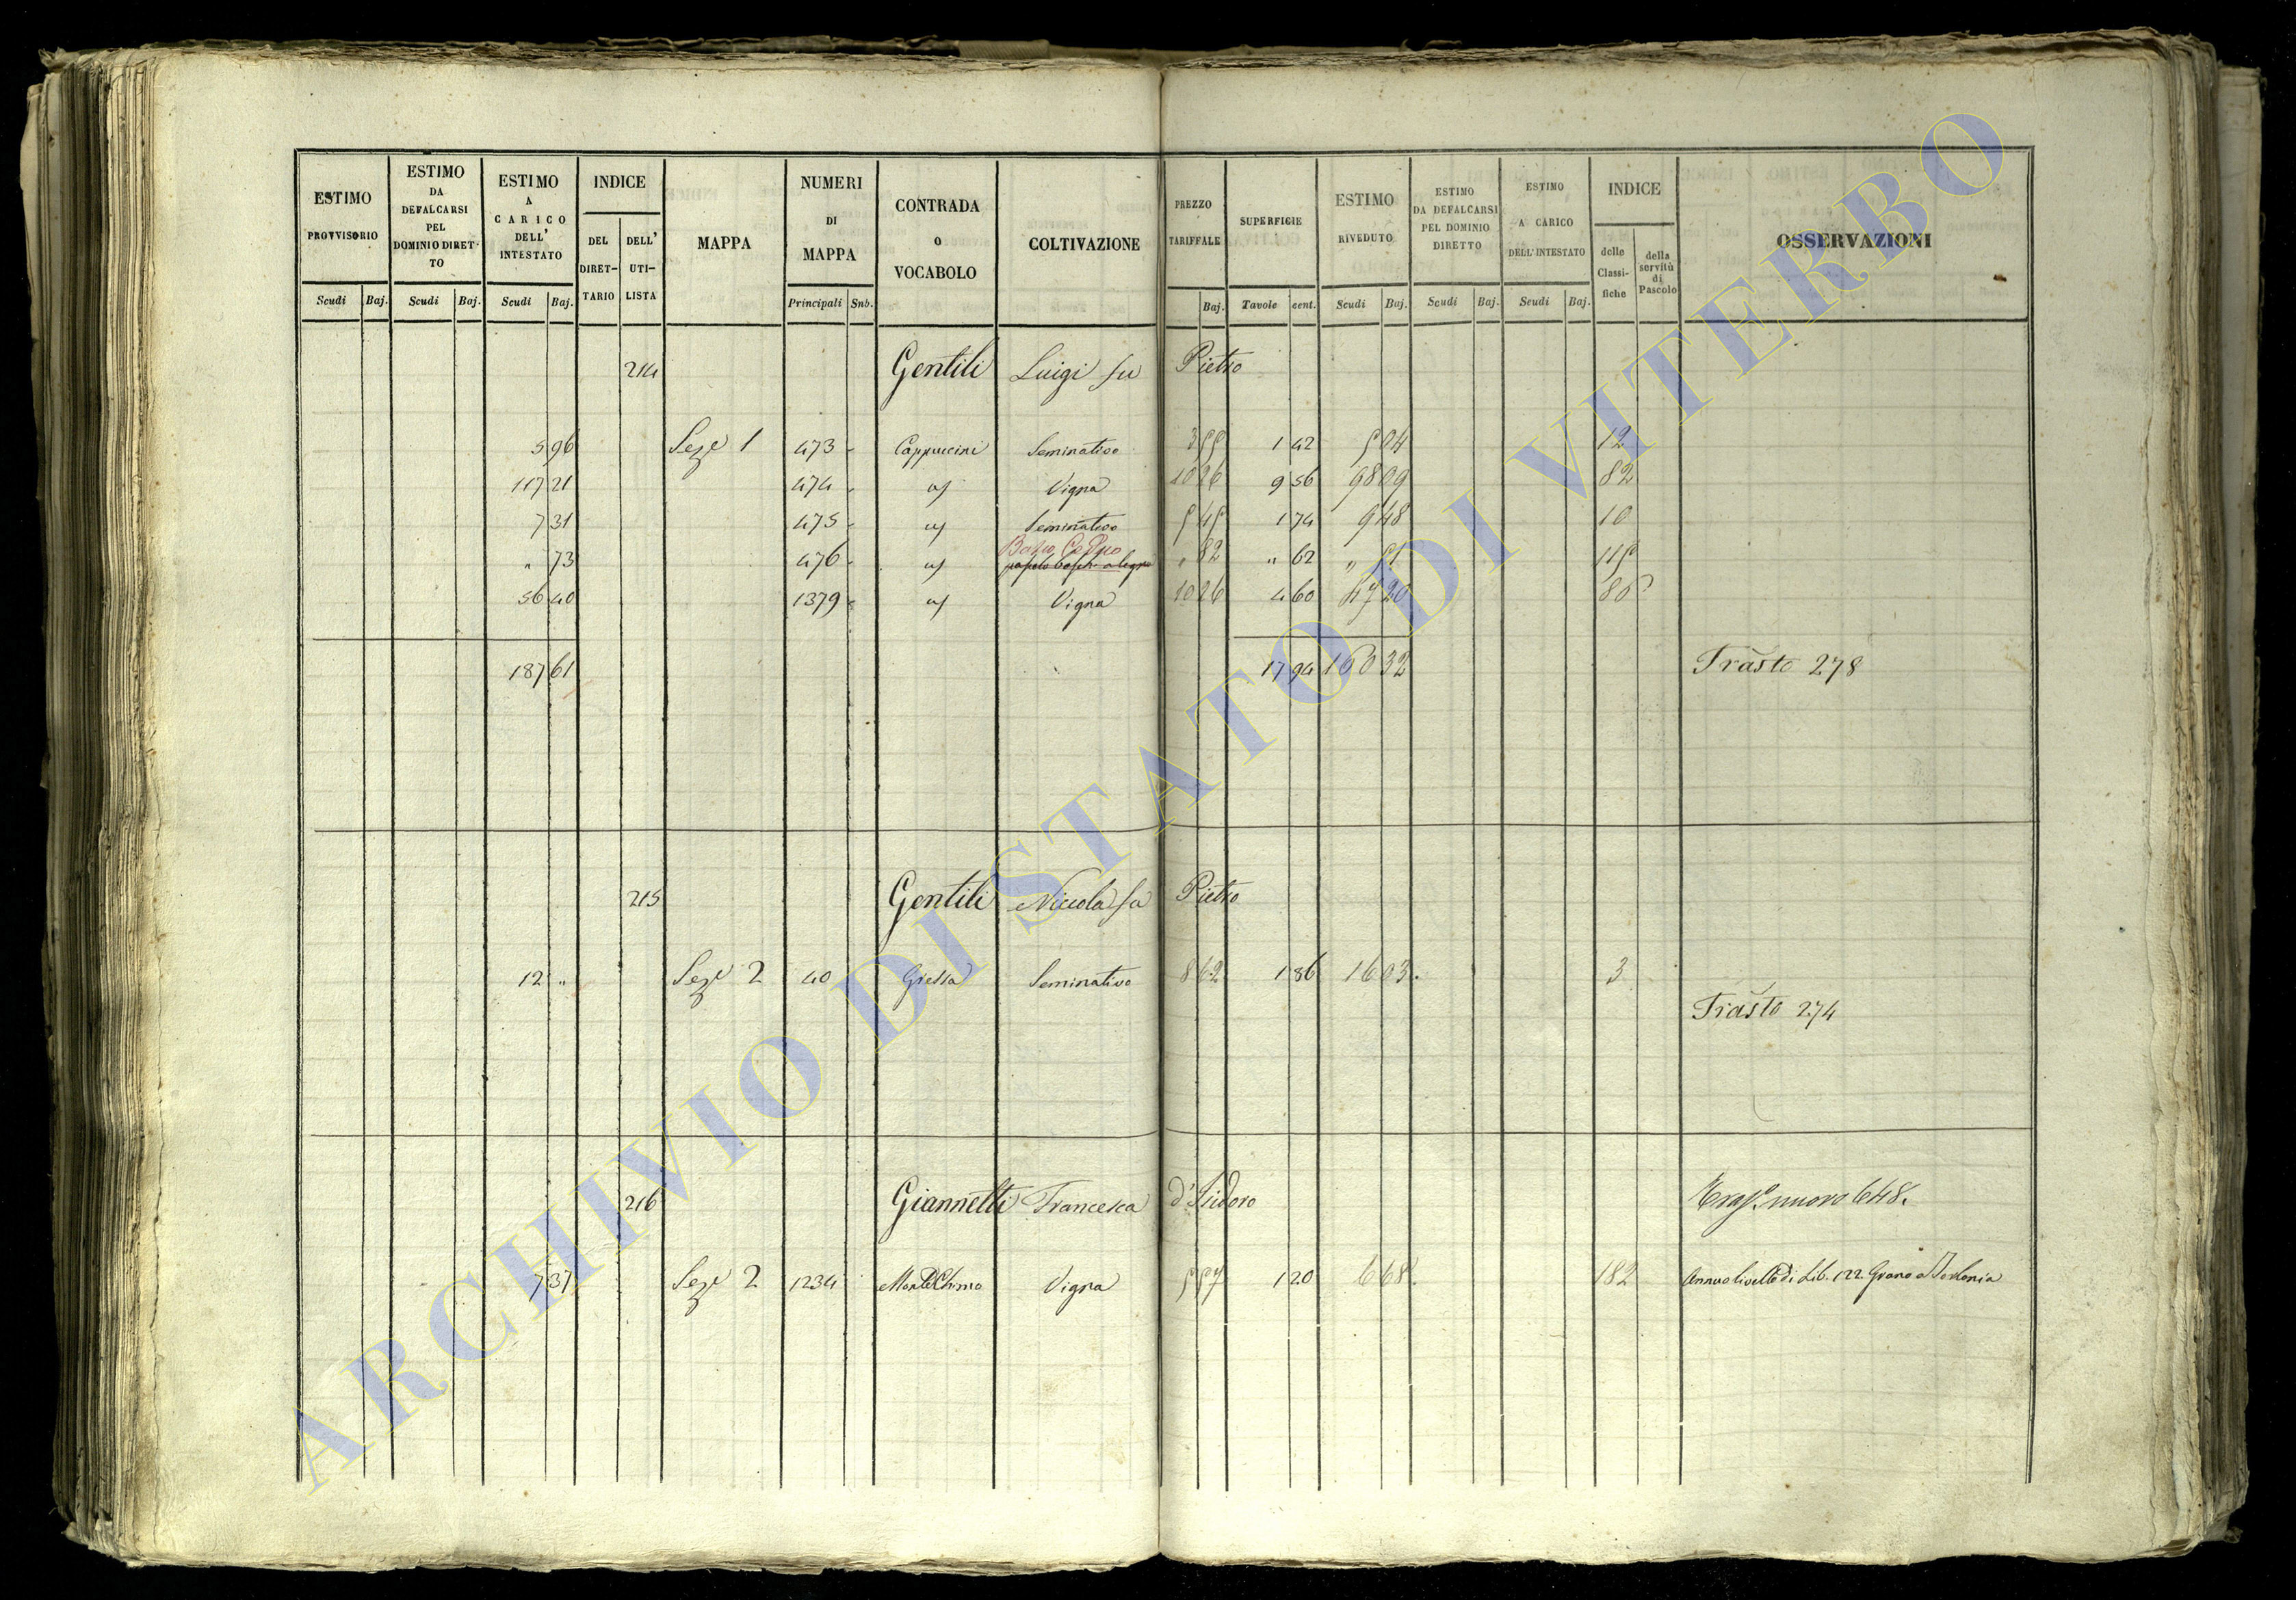 ESTIMO PROVVISORIO
ESTIMO DA DEFALCARSI PEL DOMINIO DIRETTO
ESTIMO A CARICO DELL' INTESTATO
INDICE
DEL DIRETTARIO
DELL' UTILISTA
MAPPA
NUMERI DI MAPPA
CONTRADA O VOCABOLO
COLTIVAZIONE
PREZZO TARIFFALE
SUPERFICIE
ESTIMO RIVEDUTO
ESTIMO DA DEFALCARSI PEL DOMINIO DIRETTO
ESTIMO A CARICO DELL'INTESTATO
INDICE
delle Classifiche
della servitù di Pascolo
OSSERVAZIONI
Scudi Baj. Scudi Baj. Scudi Baj. Principali Sub. Baj. Tavole cent. Scudi Baj. Scudi Baj. Scudi Baj.
214 Gentili Luigi fu Pietro
5 96 Sez.e 1 473 Cappuccini Seminativo 3 55 1 42 5 04 12
117 21 474 Vigna 10 26 9 56 98 09 82
7 31 475 Seminativo 5 45 1 74 9 48 10
Bosco Ceduo
" 73 476 " 82 " 62 " 51 115
56 40 1379 Vigna 10 26 4 60 47 20 80
187 61 17 94 160 32 Trasto 278
215 Gentili Niccola fu Pietro
12 " Sez.e 2 40 Seminativo 8 62 1 86 16 03 3
Trasto 274
216 Giannetti Francesca d'Isidoro nuovo 648.
7 37 Sez.e 2 1234 Vigna 5 57 1 20 6 68 182 Annuo livello di Lib. 122 Grano a
ARCHIVIO DI STATO DI VITERBO